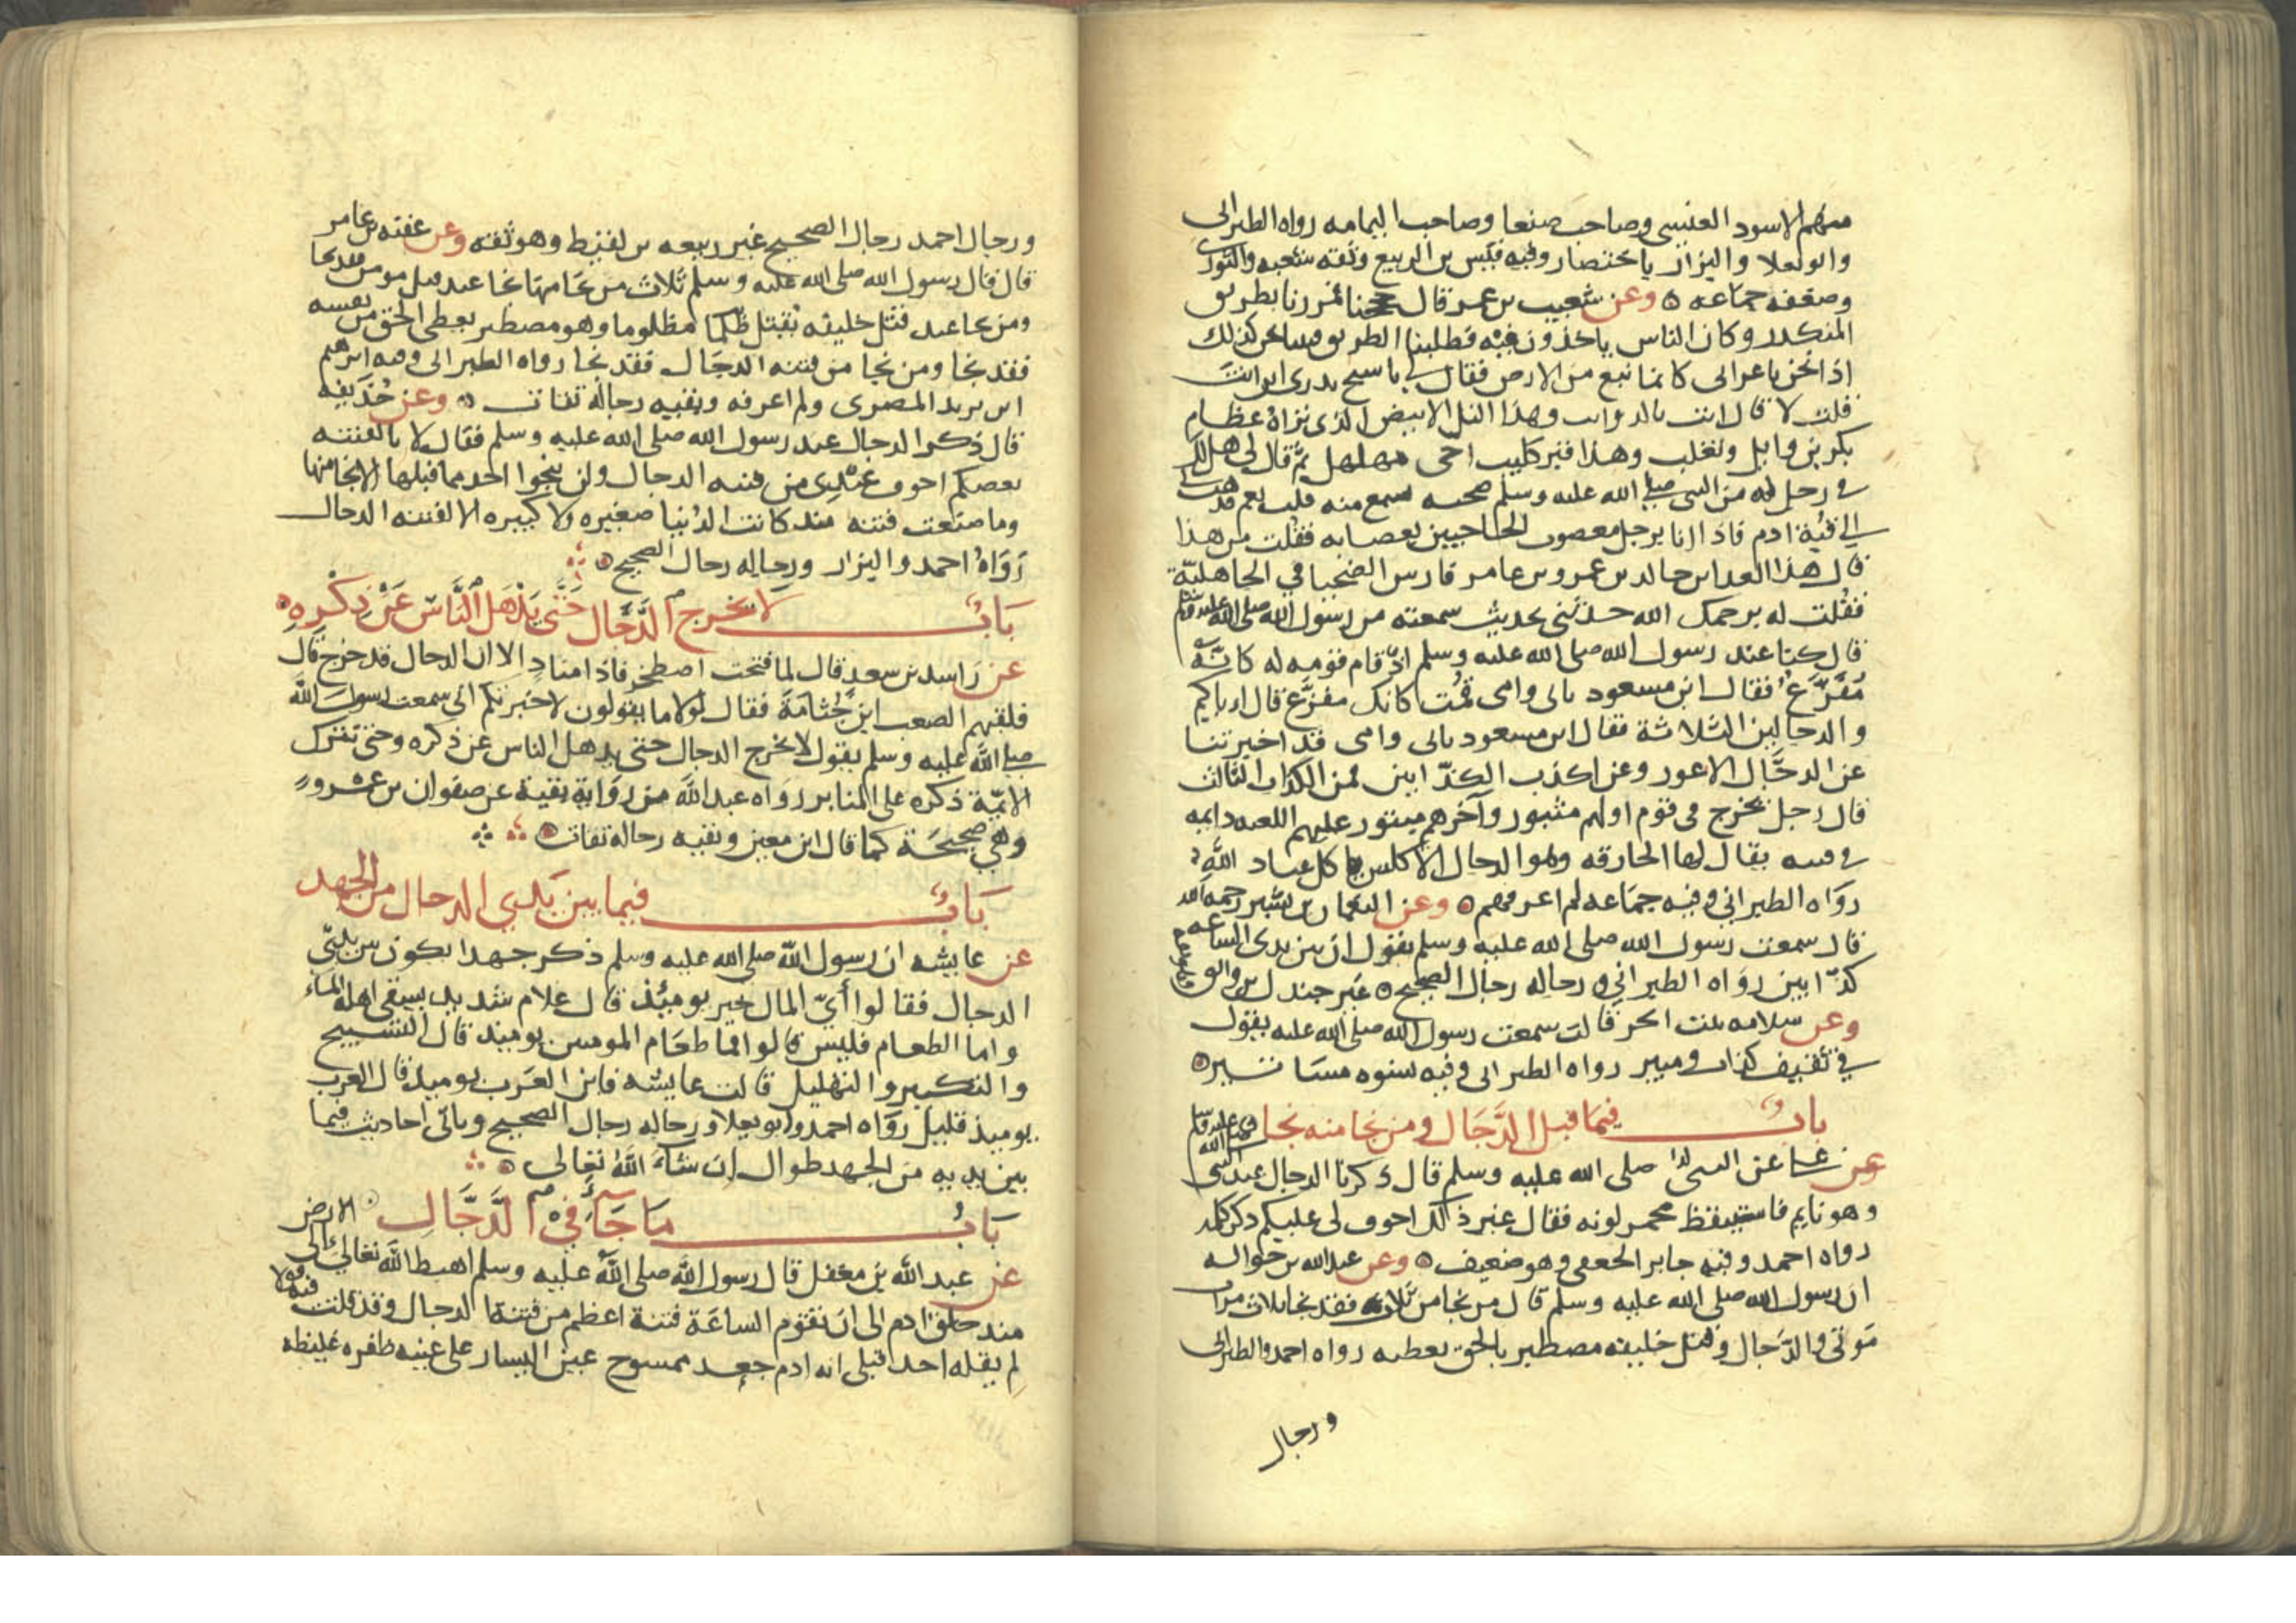 منهم الاسود العنسي وصاحب صنعا وصاحب اليمامه رواه الطبراني
وابو يعلا والبزار باختصار وفيه قيس بن الربيع وثقه شعبه والثوري
وضعفه جماعه وعن شعيب بن عمر قال حججنا فمررنا بطريق
المنكدر وكان الناس ياخذون فيه فطلبنا الطريق فبينا نحن كذلك
اذ نحن باعرابي كانما نبع من الارض فقال لي يا شيخ تدري اين انت
قلت لا قال انت بالدواب وهذا التل الابيض الذي تراه عظام
بكر بن وايل وتغلب وهذا قبر كليب اخي مهلهل ثم قال لي هل لك
في رجل له من النبي صلى الله عليه وسلم صحبه سمع منه قلت نعم فذهبت
الى قبة ادم فاذا انا برجل معصوب الحاجبين بعصابه فقلت من هذا
قال هذا العدا بن خالد بن عمرو بن عامر فارس الضحيا في الجاهلية
فقلت له يرحمك الله حدثني بحديث سمعته من رسول الله صلى الله عليه وسلم
قال كنا عند رسول الله صلى الله عليه وسلم اذ قام قومه له كانه
مفزع فقال ابن مسعود بابي وامي قمت كانك مفزع قال اياكم
والدجالين الثلاثة فقال ابن مسعود بابي وامي قد اخبرتنا
عن الدجال الاعور وعن اكذب الكذابين فمن الكذاب الثالث
قال رجل يخرج في قوم اولهم مثبور وآخرهم مبتور عليهم اللعنه دايبه
في فتنه يقال لها الحارقه وهو الدجال الاكلس ياكل عباد الله
رواه الطبراني وفيه جماعه لم اعرفهم وعن النعمان بن بشير رحمه الله
قال سمعت رسول الله صلى الله عليه وسلم يقول ان بين يدي الساعه
كذابين رواه الطبراني ورجاله رجال الصحيح غير جندل بن والق
وعن سلامه بنت الحر قالت سمعت رسول الله صلى الله عليه يقول
في ثقيف كذاب ومبير رواه الطبراني وفيه نسوه مساتير
باب فيما قبل الدجال ومن نجا منه نجا
عن علي عن النبي صلى الله عليه وسلم قال ذكرنا الدجال عند النبي صلى الله عليه وسلم
وهو نايم فاستيقظ محمر لونه فقال غير ذلك اخوف لي عليكم ذكر كلمه
رواه احمد وفيه جابر الجعفي وهو ضعيف وعن عبد الله بن حواله
ان رسول الله صلى الله عليه وسلم قال من نجا من ثلاث فقد نجا ثلاث مرات
موتي والدجال وقتل خليفه مصطبر بالحق يعطيه رواه احمد والطبراني
ورجال
ورجال احمد رجال الصحيح غير ربيعه بن لقيط وهو ثقه وعن عقبه بن عامر
قال قال رسول الله صلى الله عليه وسلم ثلاث من نجا منها نجا عند قتل مومن فقد نجا
ومن نجا عند قتل خليفه يقتل ظلما مظلوما وهو مصطبر يعطي الحق من نفسه
فقد نجا ومن نجا من فتنه الدجال فقد نجا رواه الطبراني وفيه ابرهيم
ابن يزيد المصري ولم اعرفه وبقيه رجاله ثقات وعن حذيفه
قال ذكر الدجال عند رسول الله صلى الله عليه وسلم فقال لا بالفتنه
بعضكم اخوف عندي من فتنه الدجال ولن ينجوا احد مما قبلها الا نجا منها
وما صنعت فتنه منذ كانت الدنيا صغيره ولا كبيره الا لفتنه الدجال
رواه احمد والبزار ورجاله رجال الصحيح
باب لا يخرج الدجال حتى يذهل الناس عن ذكره
عن راشد بن سعد قال لما فتحت اصطخر فاذا مناد الا ان الدجال قد خرج قال
فلقيهم الصعب ابن جثامة فقال لولا ما يقولون لاخبرتكم اني سمعت رسول الله
صلى الله عليه وسلم يقول لا يخرج الدجال حتى يذهل الناس عن ذكره وحتى تترك
الايمة ذكره على المنابر رواه عبد الله من رواية بقية عن صفوان بن عمرو
وهي صحيحة كما قال ابن معين وبقيه رجاله ثقات
باب فيما بين يدي الدجال من الجهد
عن عايشه ان رسول الله صلى الله عليه وسلم ذكر جهدا يكون بين يدي
الدجال فقالوا أي المال خير يوميذ قال غلام شديد يسقي اهله الماء
واما الطعام فليس قالوا فما طعام المومنين يوميذ قال التسبيح
والتكبير والتهليل قالت عايشه فاين العرب يوميذ قال العرب
يوميذ قليل رواه احمد وابو يعلا ورجاله رجال الصحيح وياتي احاديث فيما
بين يديه من الجهد طوال ان شاء الله تعالى
باب ما جاء في الدجال
عن عبد الله بن مغفل قال رسول الله صلى الله عليه وسلم ما اهبط الله تعالى الى الارض
منذ خلق ادم الى ان تقوم الساعة فتنة اعظم من فتنة الدجال وقد قلت فيه قولا
لم يقله احد قبلي انه ادم جعد ممسوح عين اليسار على عينه ظفره غليظه